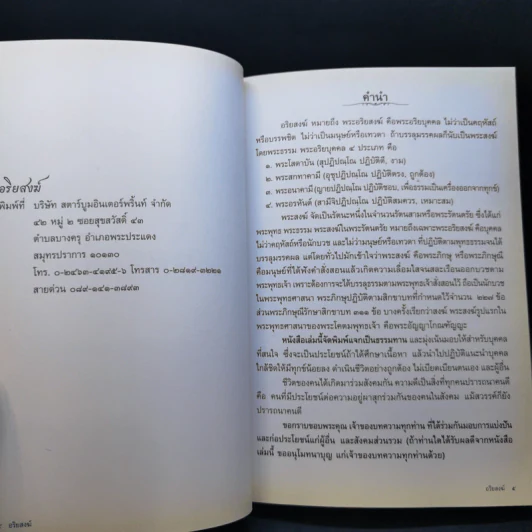 อริยสงฆ์
พิมพ์ที่ บริษัท สตาร์บูมอินเตอร์พริ้นท์ จำกัด
๔๒ หมู่ ๒ ซอยสุขสวัสดิ์ ๔๓
ตำบลบางครุ อำเภอพระประแดง
สมุทรปราการ ๑๐๑๓๐
โทร. ๐-๒๔๖๓-๔๑๙๕-๖ โทรสาร ๐-๒๘๑๗-๓๒๒๑
สายด่วน ๐๘๙-๑๔๑-๓๘๙๓
อริยสงฆ์
คำนำ
อริยสงฆ์ หมายถึง พระอริยสงฆ์ คือพระอริยบุคคล ไม่ว่าเป็นคฤหัสถ์
หรือบรรพชิต ไม่ว่าเป็นมนุษย์หรือเทวดา ถ้าบรรลุมรรคผลก็นับเป็นพระสงฆ์
โดยพระธรรม พระอริยบุคคล ๔ ประเภท คือ
๑. พระโสดาบัน (สุปฏิปณฺโณ ปฏิบัติดี, งาม)
๒. พระสกทาคามี (อุชุปฏิปณฺโณ ปฏิบัติตรง, ถูกต้อง)
๓. พระอนาคามี (ญายปฏิปณฺโณ ปฏิบัติชอบ, เพื่อธรรมเป็นเครื่องออกจากทุกข์)
๔. พระอรหันต์ (สามีจิปฏิปณฺโณ ปฏิบัติสมควร, เหมาะสม)
พระสงฆ์ จัดเป็นรัตนะหนึ่งในจำนวนรัตนสามหรือพระรัตนตรัย ซึ่งได้แก่
พระพุทธ พระธรรม พระสงฆ์ พระสงฆ์ในพระรัตนตรัย หมายถึงเฉพาะพระอริยสงฆ์ คือบุคคล
ไม่ว่าคฤหัสถ์หรือนักบวช และไม่ว่ามนุษย์หรือเทวดา ที่ปฏิบัติตามพุทธธรรมจนได้
บรรลุมรรคผล แต่โดยทั่วไปมักเข้าใจว่าพระสงฆ์ คือพระภิกษุ หรือพระภิกษุณี
คือมนุษย์ที่ได้ฟังคำสั่งสอนแล้วเกิดความเลื่อมใสจนสละเรือนออกบวชตาม
พระพุทธเจ้า เพราะต้องการจะได้บรรลุธรรมตามพระพุทธเจ้าสั่งสอนไว้ ถือเป็นนักบวช
ในพระพุทธศาสนา พระภิกษุปฏิบัติตามสิกขาบทที่กำหนดไว้จำนวน ๒๒๗ ข้อ
ส่วนพระภิกษุณีรักษาสิกขาบท ๓๑๑ ข้อ บางครั้งเรียกว่าสงฆ์ พระสงฆ์รูปแรกใน
พระพุทธศาสนาของพระโคตมพุทธเจ้า คือพระอัญญาโกณฑัญญะ
หนังสือเล่มนี้จัดพิมพ์แจกเป็นธรรมทาน และมุ่งเน้นมอบให้สำหรับบุคคล
ที่สนใจ ซึ่งจะเป็นประโยชน์ถ้าได้ศึกษาเนื้อหา แล้วนำไปปฏิบัติแนะนำบุคคล
ใกล้ชิดให้มีทุกข์น้อยลง ดำเนินชีวิตอย่างถูกต้อง ไม่เบียดเบียนตนเอง และผู้อื่น
ชีวิตของคนได้เกิดมาร่วมสังคมกัน ความดีเป็นสิ่งที่ทุกคนปรารถนาคนดี
คือ คนที่มีประโยชน์ต่อความอยู่ผาสุกร่วมกันของคนในสังคม แม้สวรรค์ก็ยัง
ปรารถนาคนดี
ขอกราบขอบพระคุณ เจ้าของบทความทุกท่าน ที่ได้ร่วมกันมอบการแบ่งปัน
และก่อประโยชน์แก่ผู้อื่น และสังคมส่วนรวม (ถ้าท่านใดได้รับผลดีจากหนังสือ
เล่มนี้ ขออนุโมทนาบุญ แก่เจ้าของบทความทุกท่านด้วย)
อริยสงฆ์